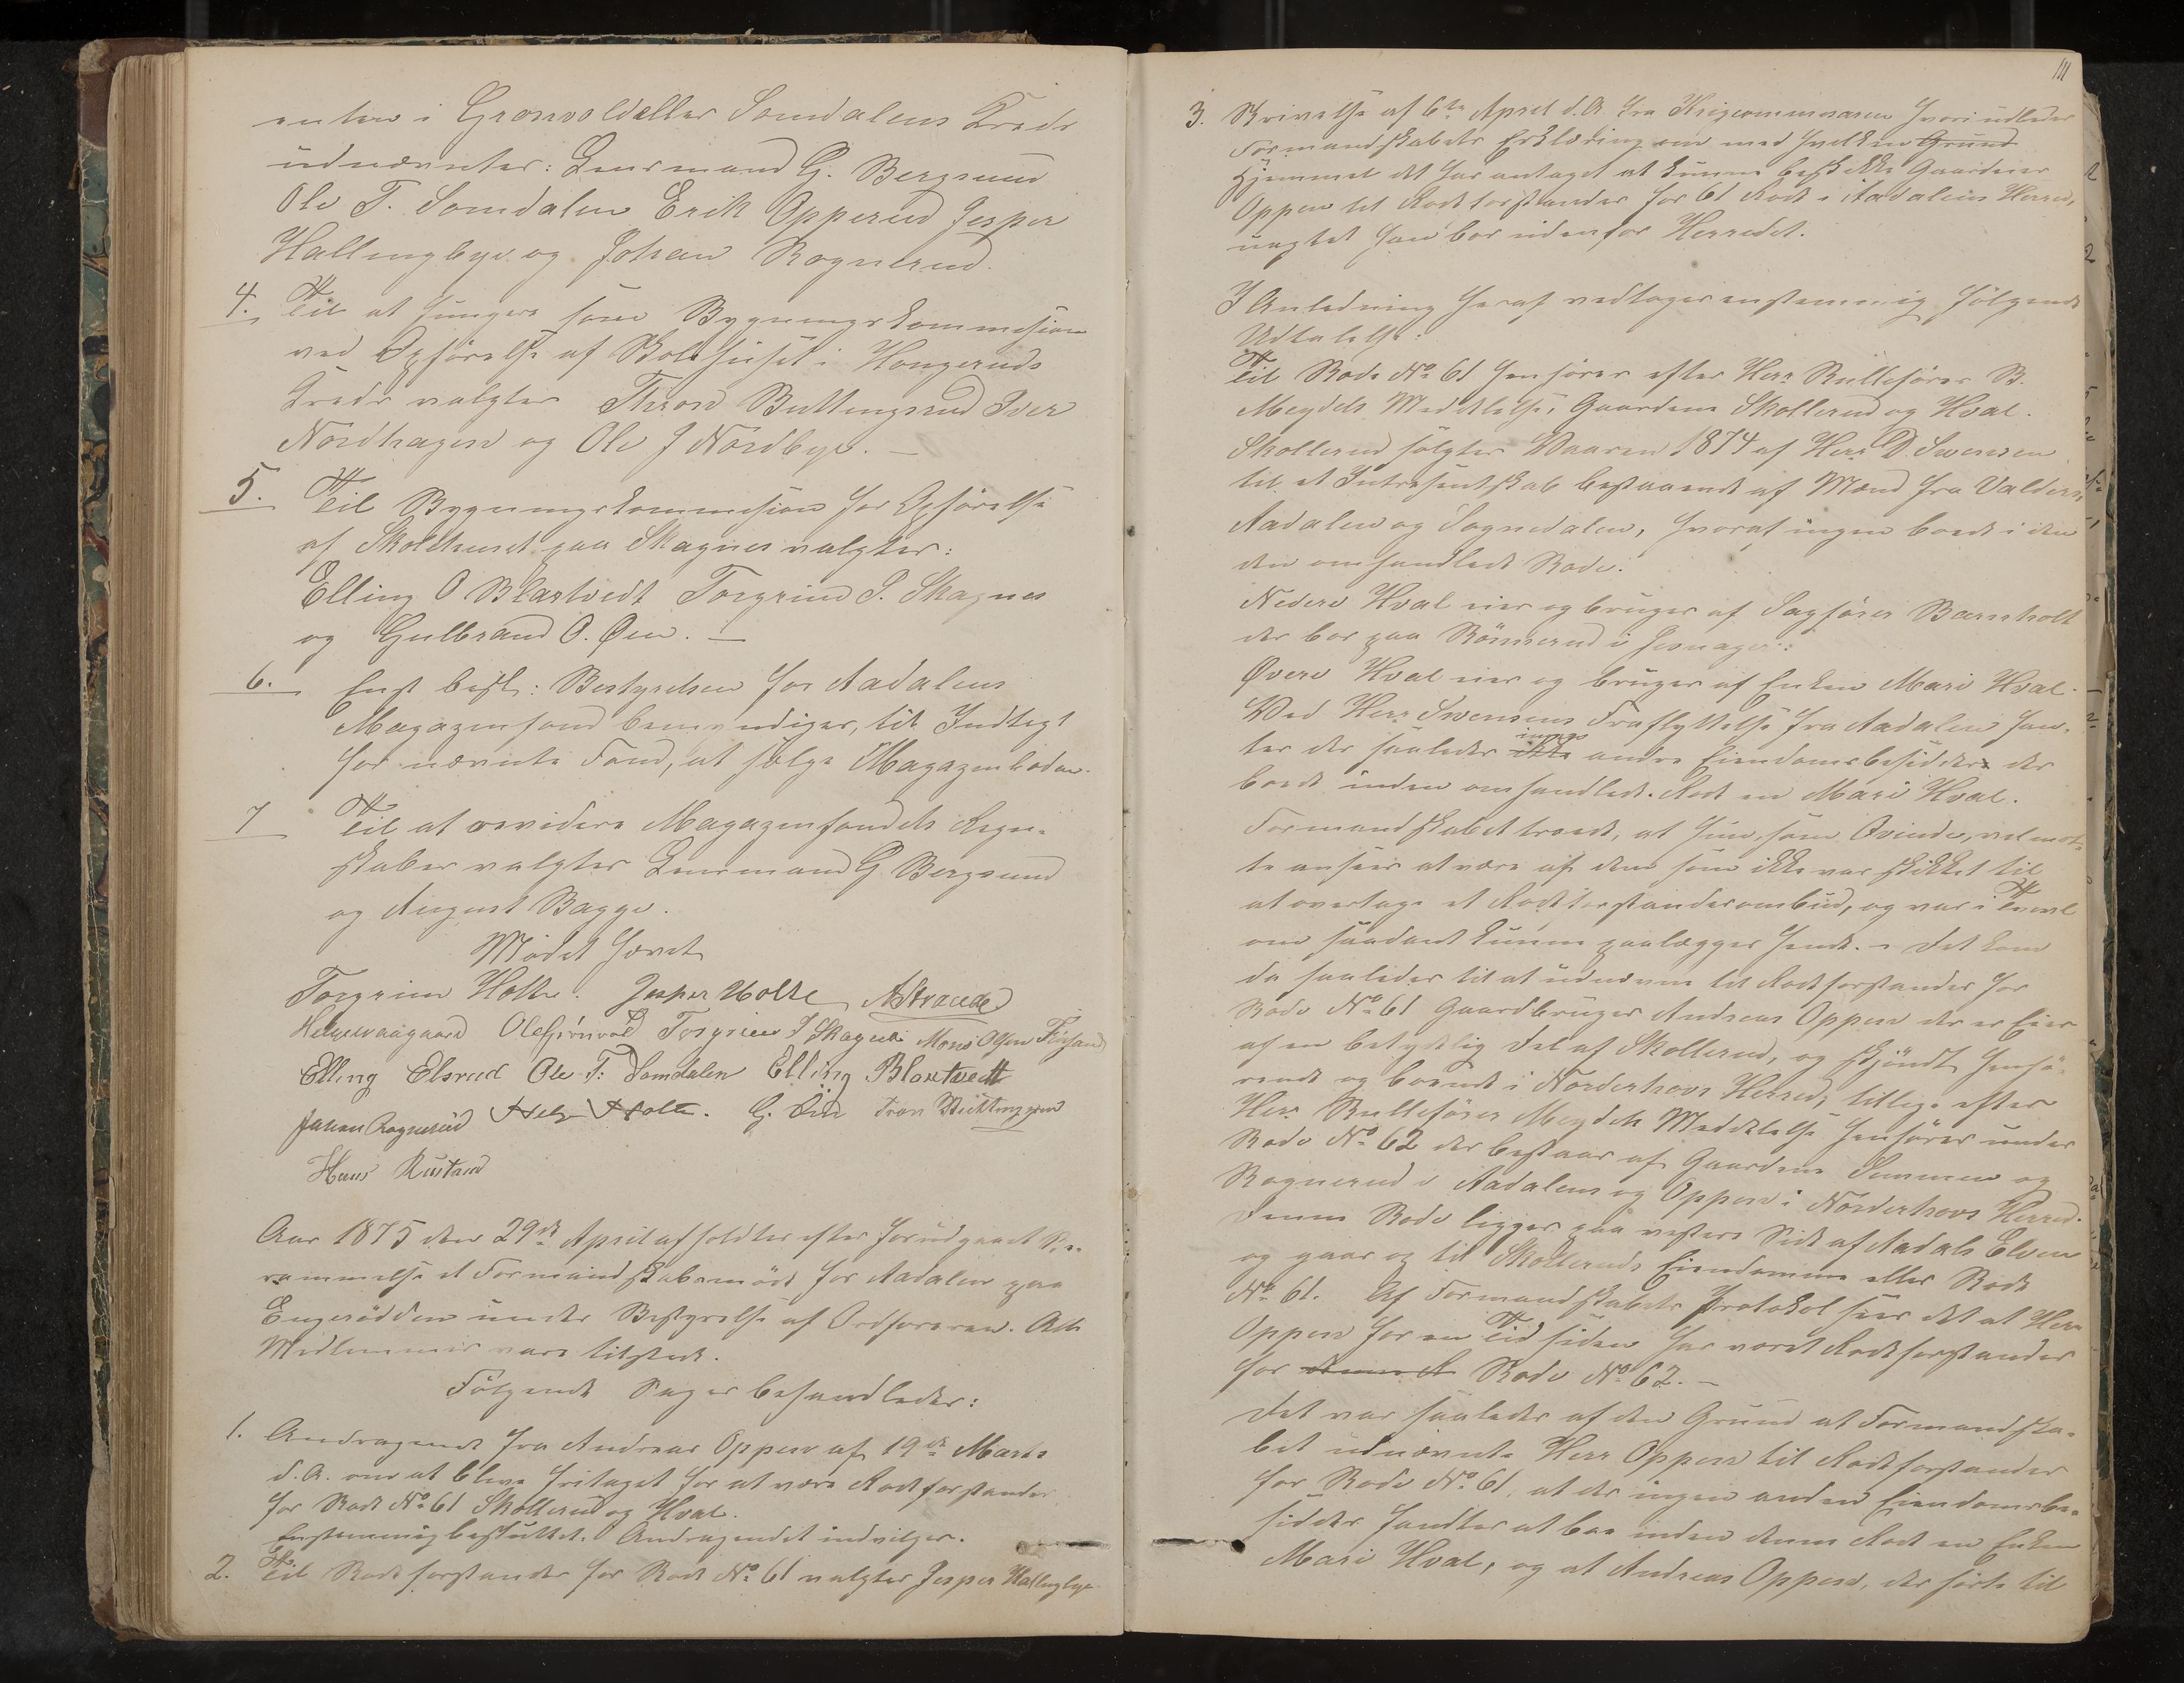 enten i Grønvold eller Somdalens Kreds
udnævntes: Lensmand G. Bergsund
Ole T. Somdalen Erik Opperud Jesper
Hallingbye og Johan Rognerud.
4. Til at fungere som Bygningskommision
ved Opførelse af Skolehuset i Hongeruds
Kreds valgtes Thron Buttingsrud Iver
Nordhagen og Ole J Nordbye. —
5. Til Bygningskommision for Opførelse
af Skolehuset paa Skagnes valgtes:
Elling O Blaxtvedt Torgrim S. Skagnes
og Gulbrand O. Øen. —
6. Enst besl: Bestyrelsen for Aadalens
Magazinfond bemyndiges, til Indtægt
for nævnte Fond, at sælge Magazinboden.
7 Til at revidere Magazinfondets Regn-
skaber valgtes Lensmand G. Bergsund
og August Bagge.
Mødet hævet
Torgrim Holte. Jesper Holte A Strande
Helge Vaagaard Ole Grønvold Torgrim S Skagnes Mons Olsen Finsand
Elling Elsrud Ole T: Somdalen Elling Blaxtvedt
Johan Rognerud Helge Holte. G. Øen Tron Buttingsrud
Hans Rustand
Aar 1875 den 29de April afholdtes efter forudgaaet Be-
rammelse et Formandskabsmøde for Aadalen paa
Engerodden under Bestyrelse af Ordføreren. Alle
Medlemmer vare tilstede.
Følgende Sager behandledes:
1. Andragende fra Andreas Oppen af 19de Marts
d. A. om at blive fritaget for at være Rodeforstander
for Rode No 61 Skollerud og Hval.
Enstemmig besluttet. Andragendet indvilges.
2. Til Rodeforstander for Rode No 61 valgtes Jesper Hallingbye
111
3. Skrivelse af 6te April d. A. fra Krigscommissæren hvori udbedes
Formandskabets Erklæring om med hvilken Grund
Hjemmel det har antaget at kunne beskikke Gaardeier
Oppen til Rodeforstander for 61 Rode i Aadalens Herred,
uagtet han bor udenfor Herredet.
I Anledning heraf vedtoges enstemmig følgende
Udtalelse:
Til Rode No 61 henhører efter Herr Rullefører B.
Meydels Meddelelse, Gaardene Skollerud og Hval.
Skollerud solgtes Vaaren 1874 af Herr D. Svensen
til et Intresentskab bestaaende af Mænd fra Valders,
Aadalen og Sognedalen, hvoraf ingen boede i den
den omhandlede Rode.
Nedre Hval eies og bruges af Sagfører Barnholt
der bor paa Rønnerud i Jevnager:
Øvere Hval eies og bruges af Enken Mari Hval.
Ved Herr Svensens Fraflyttelse fra Aadalen fan-
tes der saaledes ikke ingen andre Eiendomsbesiddere der
boede inden omhandlede Rode en Mari Hval.
Formandskabet troede, at hun, som Qvinde, vel maat-
te ansees at være af dem som ikke var skikket til
at overtage et Rodeforstanderombud, og var i Tvivl
om saadant kunne paalægges hende. – Det kom
da saaledes til at udnævne til Rodeforstander for
Rode No 61 Gaardbruger Andreas Oppen der er Eier
af en betydelig Del af Skollerud, og skjøndt henhø-
rende og boende i Norderhovs Herred, tillige efter
Herr Rullefører Meydels Meddelelse henhører under
Rode No 62 der bestaar af Gaardene Semmen og
Rognerud i Aadalens og Oppen i Norderhovs Herred.
Denne Rode ligger paa vestere Side af Aadals Elven
og gaar op til Skolleruds Eiendomme eller Rode
No 61. Af Formandskabets Protokol sees det at Herr
Oppen for en Tid siden har været Rodeforstander
for denne R Rode No 62. –
Det var saaledes af den Grund at Formandska-
bet udnævnte Herr Oppen til Rodeforstander
for Rode No 61, at der ingen anden Eiendomsbe-
sidder fandtes at boe inden denne Rode en Enken
Mari Hval, og at Andreas Oppen, der hørte til